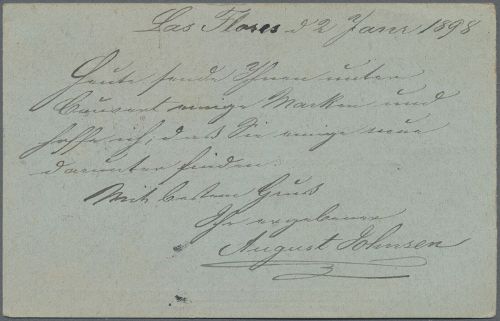 Las Flores d 2 Janr 1898
Heute sende Ihnen unter
Couvert einige Marken und
hoffe ich, dass Sie einige neue
darunter finden.
Mit bestem Gruss
Ihr ergebener
August Johnsen